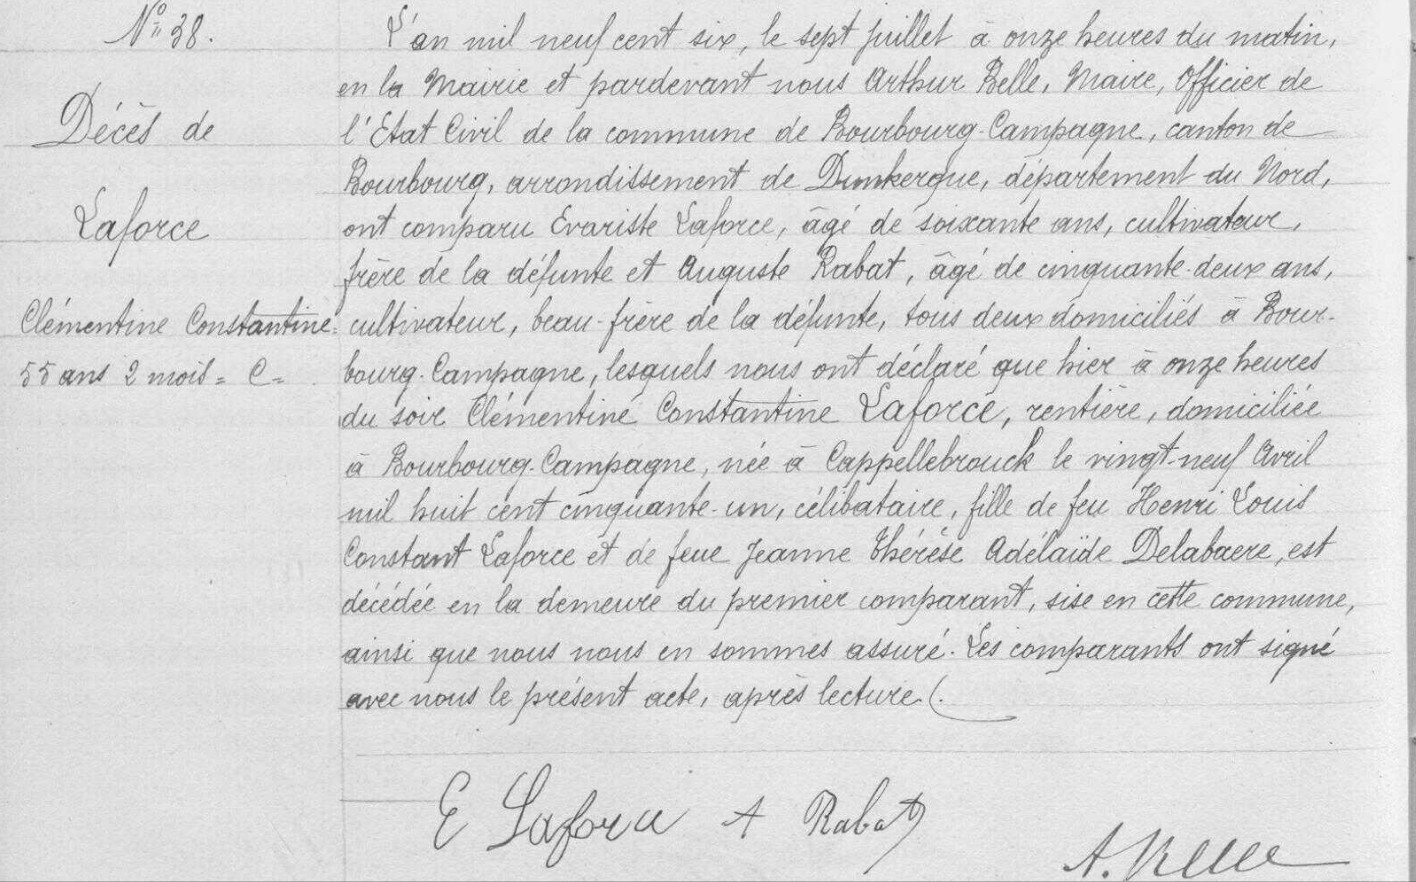 Nº 38.
Décès de
Laforce
Clémentine Constantine
55 ans 2 mois = C =
L'an mil neuf cent six, le sept juillet à onze heures du matin,
en la Mairie et pardevant nous Arthur Belle, Maire, Officier de
l'Etat Civil de la commune de Bourbourg-Campagne, canton de
Bourbourg, arrondissement de Dunkerque, département du Nord,
ont comparu Evariste Laforce, âgé de soixante ans, cultivateur,
frère de la défunte et Auguste Rabat, âgé de cinquante-deux ans,
cultivateur, beau-frère de la défunte, tous deux domiciliés à Bour-
bourg-Campagne, lesquels nous ont déclaré que hier à onze heures
du soir Clémentine Constantine Laforce, rentière, domiciliée
à Bourbourg-Campagne, née à Cappellebrouck le vingt-neuf Avril
mil huit cent cinquante-un, célibataire, fille de feu Henri Louis
Constant Laforce et de feue Jeanne Thérèse Adélaïde Delabaere, est
décédée en la demeure du premier comparant, sise en cette commune,
ainsi que nous nous en sommes assuré. Les comparants ont signé
avec nous le présent acte, après lecture (.
E Laforce A Rabat
A. Belle